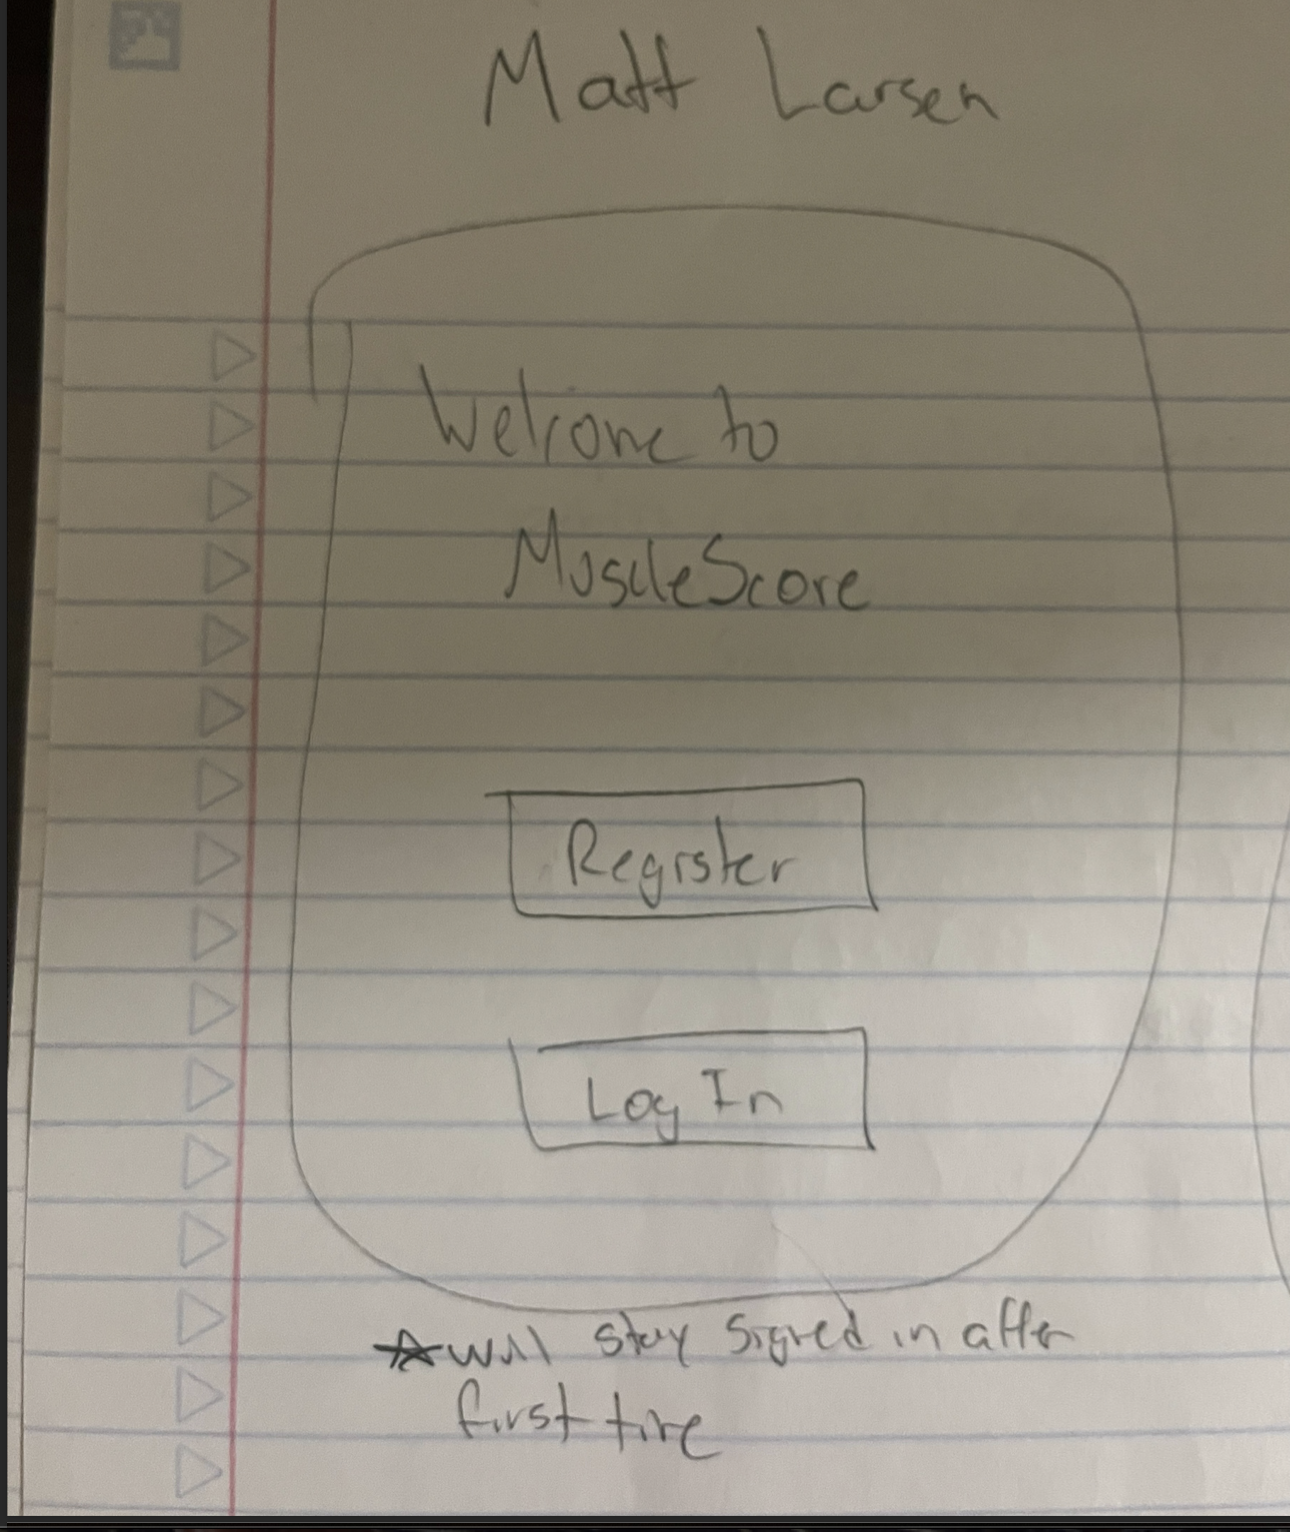 Matt Larsen
Welcome to
MuscleScore
Register
Log In
☆will stay signed in after
first time